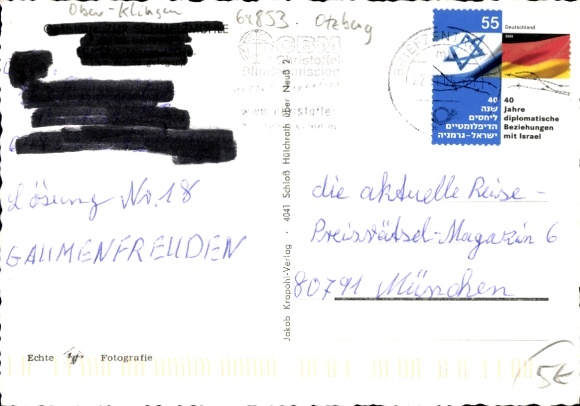 Ober-Klingen
64853 Otzberg
CBM
Christoffel
Blindenmission
BRIEFZENTRUM
55
Deutschland
2005
40
שנה
ליחסים
הדיפלומטיים
ישראל-גרמניה
40
Jahre
diplomatische
Beziehungen
mit Israel
Lösung Nr. 18
GAUMENFREUDEN
Jakob Krapohl-Verlag · 4041 Schloß Hülchrath über Neuß 2
die aktuelle Reise-
Preisrätsel-Magazin 6
80791 München
Echte Fotografie
5€